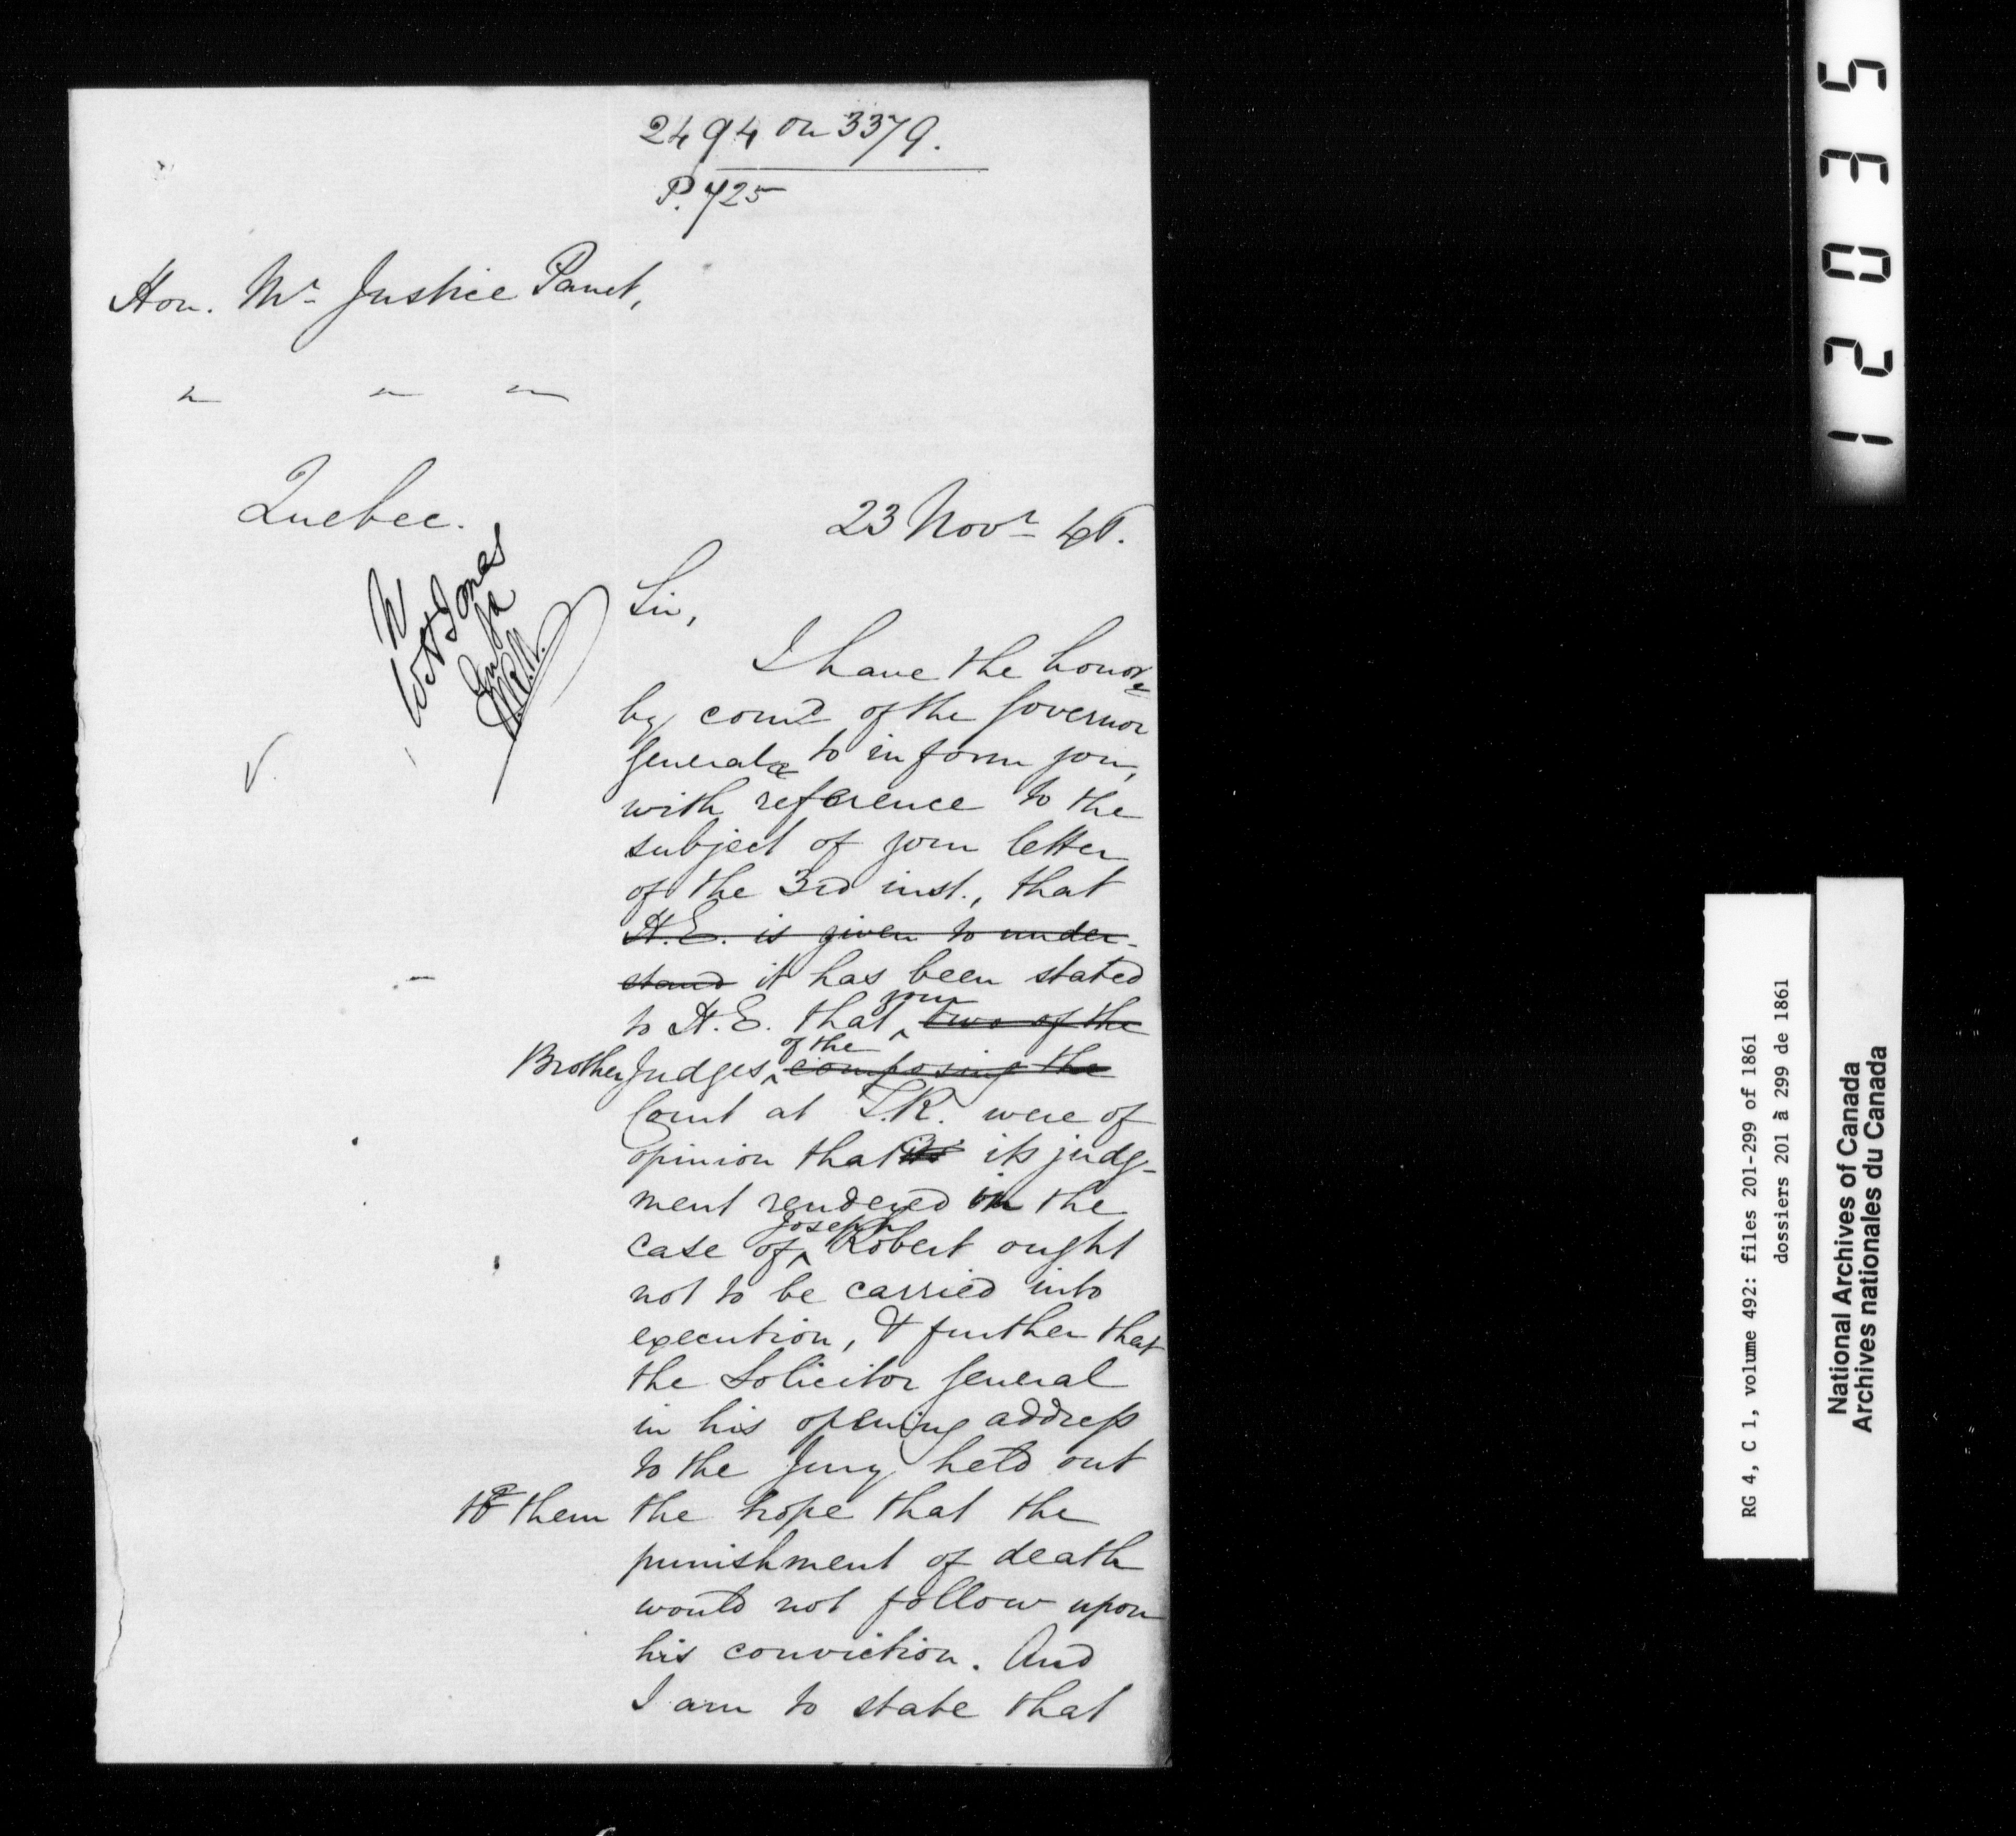 2494 on 3379.
P. 725
Hon. Mr Justice Panet,
" " "
Quebec.
23 Novr 48.
W H Jones
Sir,
I have the honor
by comd of the Governor
General to inform you,
with reference to the
subject of your letter
of the 3rd inst., that
H.E. is given to under-
stand it has been stated
to H.E. that your two of the
Brother Judges of the composing the
Court at T.R. were of
opinion that its judg-
ment rendered in the
case of Joseph Robert ought
not to be carried into
execution, & further that
the Solicitor General
in his opening address
to the Jury held out
to them the hope that the
punishment of death
would not follow upon
his conviction. And
I am to state that
12035
RG 4, C 1, volume 492: files 201-299 of 1861
dossiers 201 à 299 de 1861
National Archives of Canada
Archives nationales du Canada